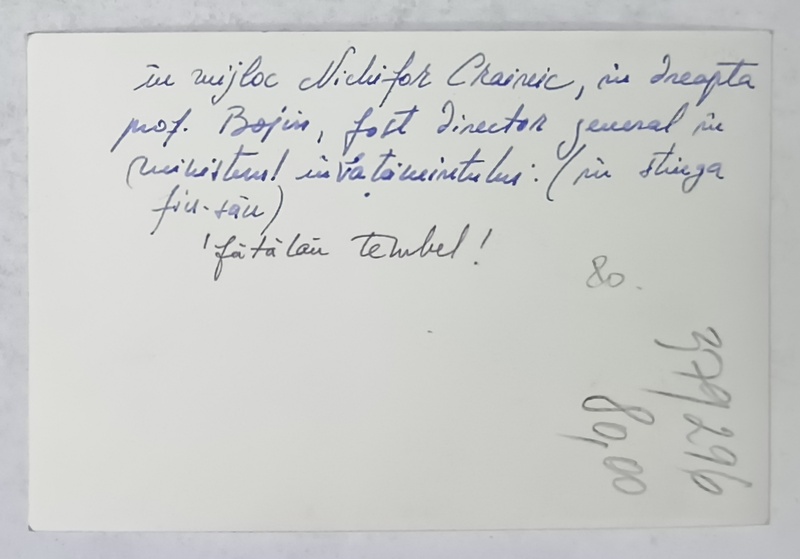 în mijloc Nichifor Crainic, în dreapta
prof. Bojin, fost director general în
ministerul învățămîntului. (în stînga
fiu-său)
! fătălău tembel!
80.
3,479296
80,00